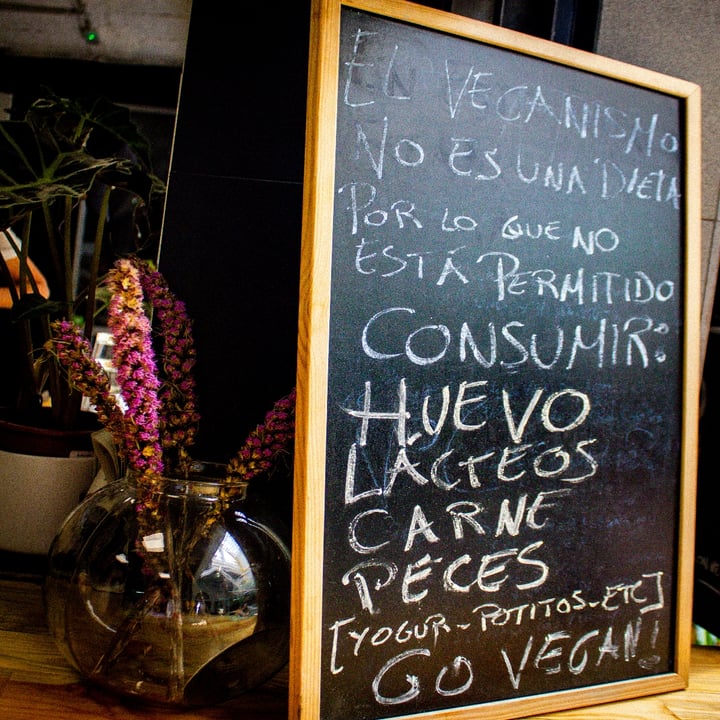 EL VEGANISMO
NO ES UNA DIETA
POR LO QUE NO
ESTÁ PERMITIDO
CONSUMIR:
HUEVO
LÁCTEOS
CARNE
PECES
[YOGUR - POTITOS - ETC]
GO VEGAN!